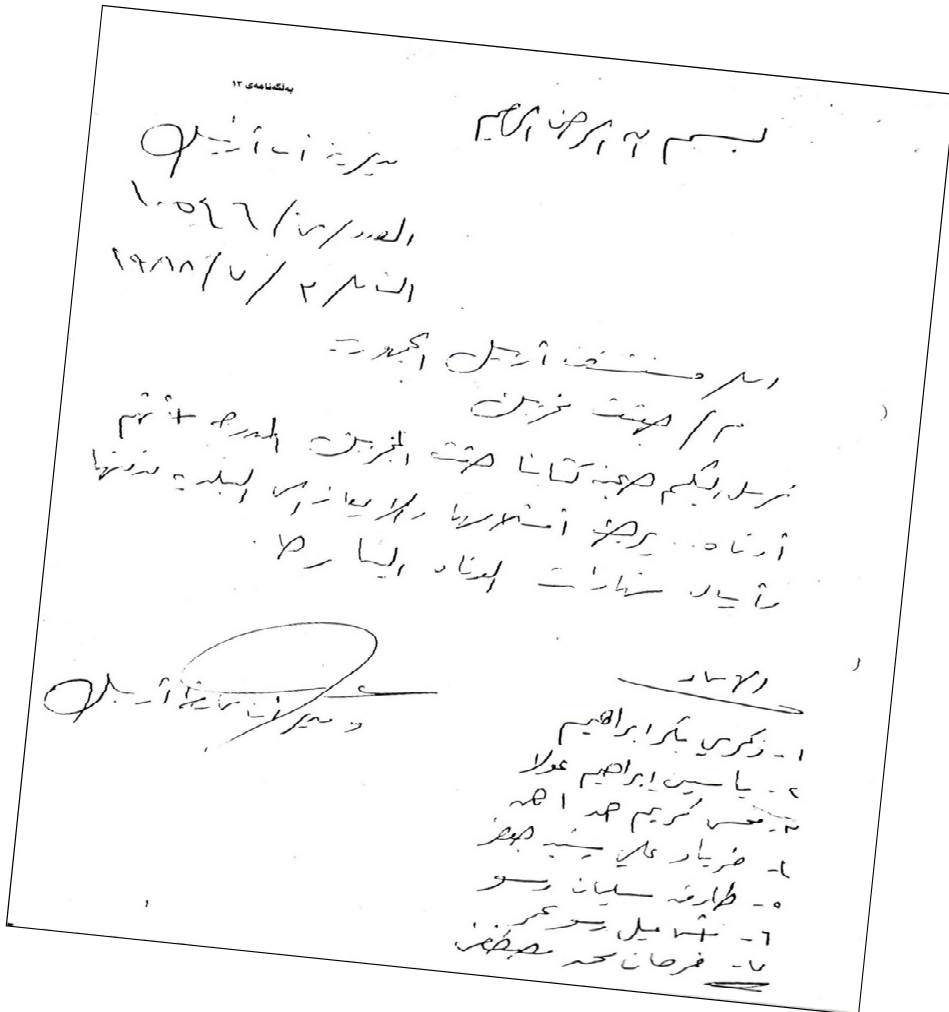 بەلگەنامەی ١٢
بسم الله الرحمن الرحيم
مديرية أمن أربيل
العدد/ / ١٠٥٤٦
التاريخ ٢ / ٧ / ١٩٨٨
الى مستشفى أربيل الجمهوري
م/ جثث مخربين
نرسل اليكم صحبة كتابنا جثث المخربين المدرجة
أدناه .. يرجى استلامها والايعاز الى البلدية بدفنها
وأرسال شهادات الوفاة الينا رجاء
مدير أمن محافظة أربيل
الاسماء
١- زكري بكر ابراهيم
٢- ياسين ابراهيم عولا
٣- كريم حمد احمد
٤- فرياد علي سيد جعفر
٥- طارق سليمان رسو
٦- رسو عمر
٧- فرحان محمد مصطفى